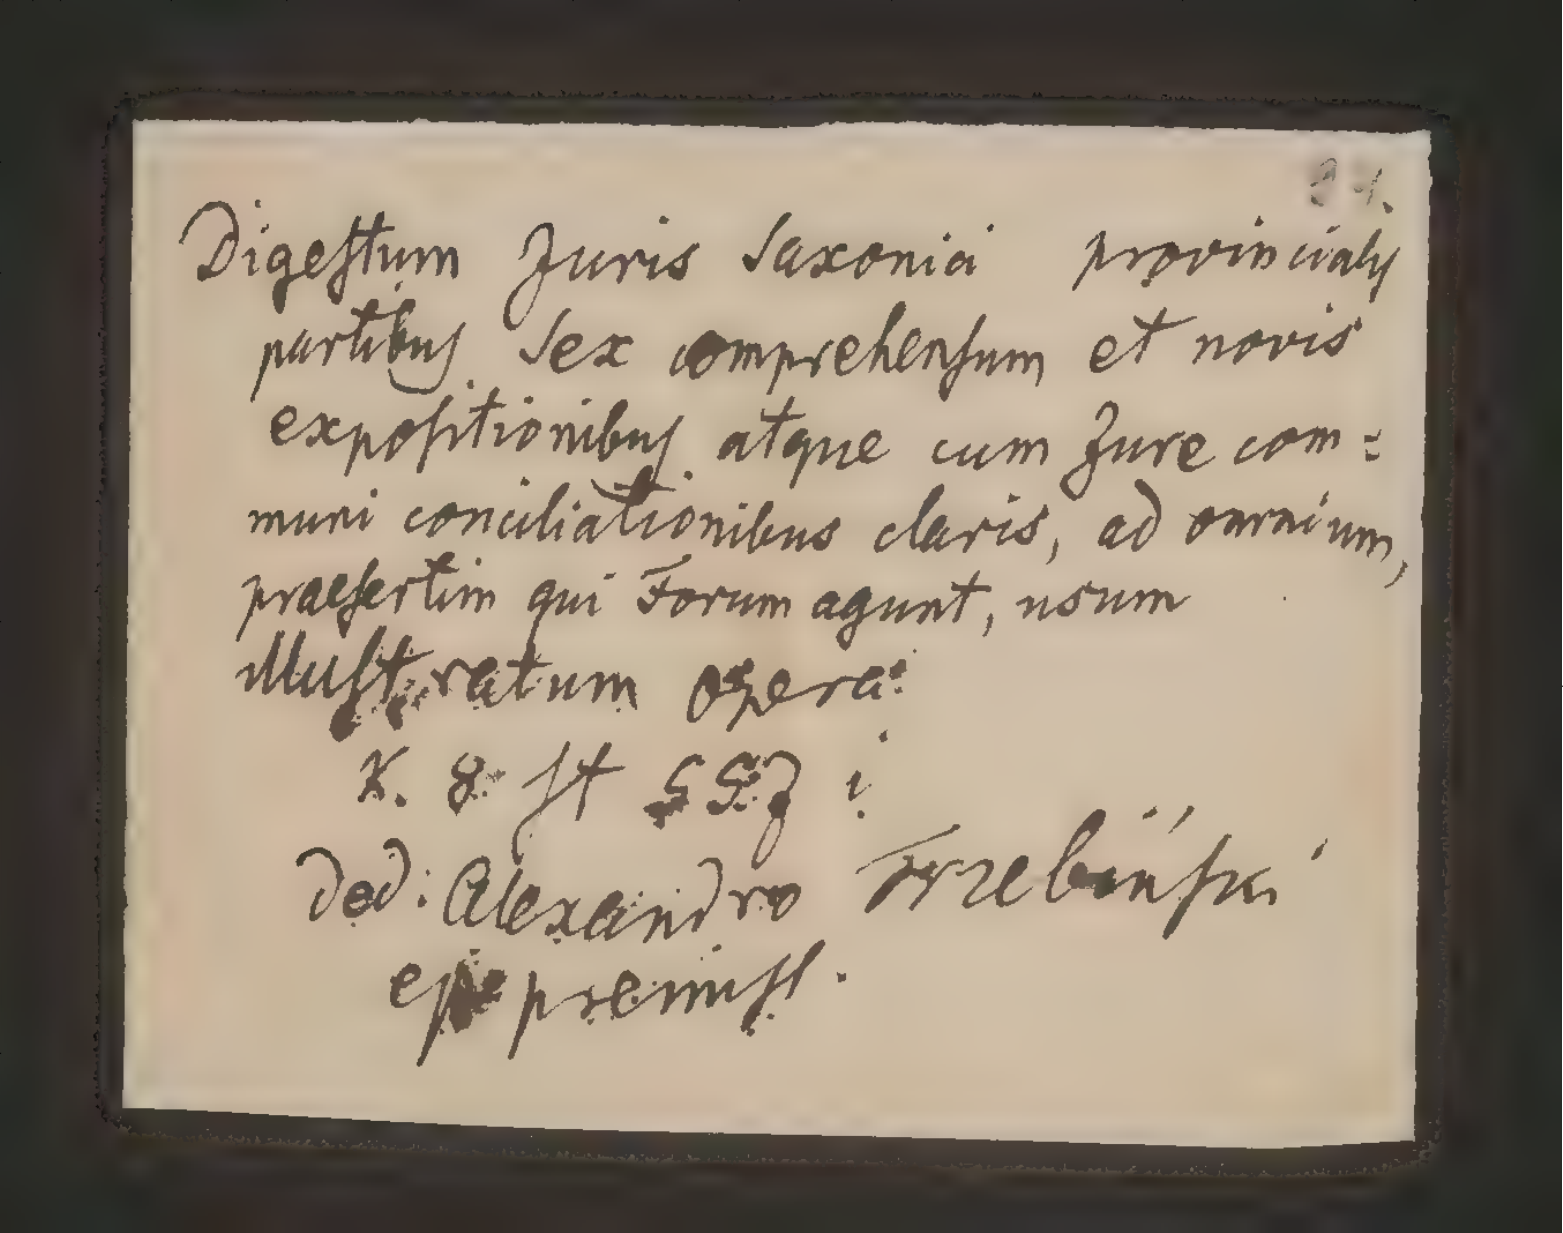 Digestum Juris Saxonici provincialis
partibus Sex comprehensum et novis
expositionibus atque cum Jure com=
muni conciliationibus claris, ad omnium,
praesertim qui Forum agunt, usum
illustratum opera:
K. 8. st
ded: Alexandro Trzebiński
epo premisl.